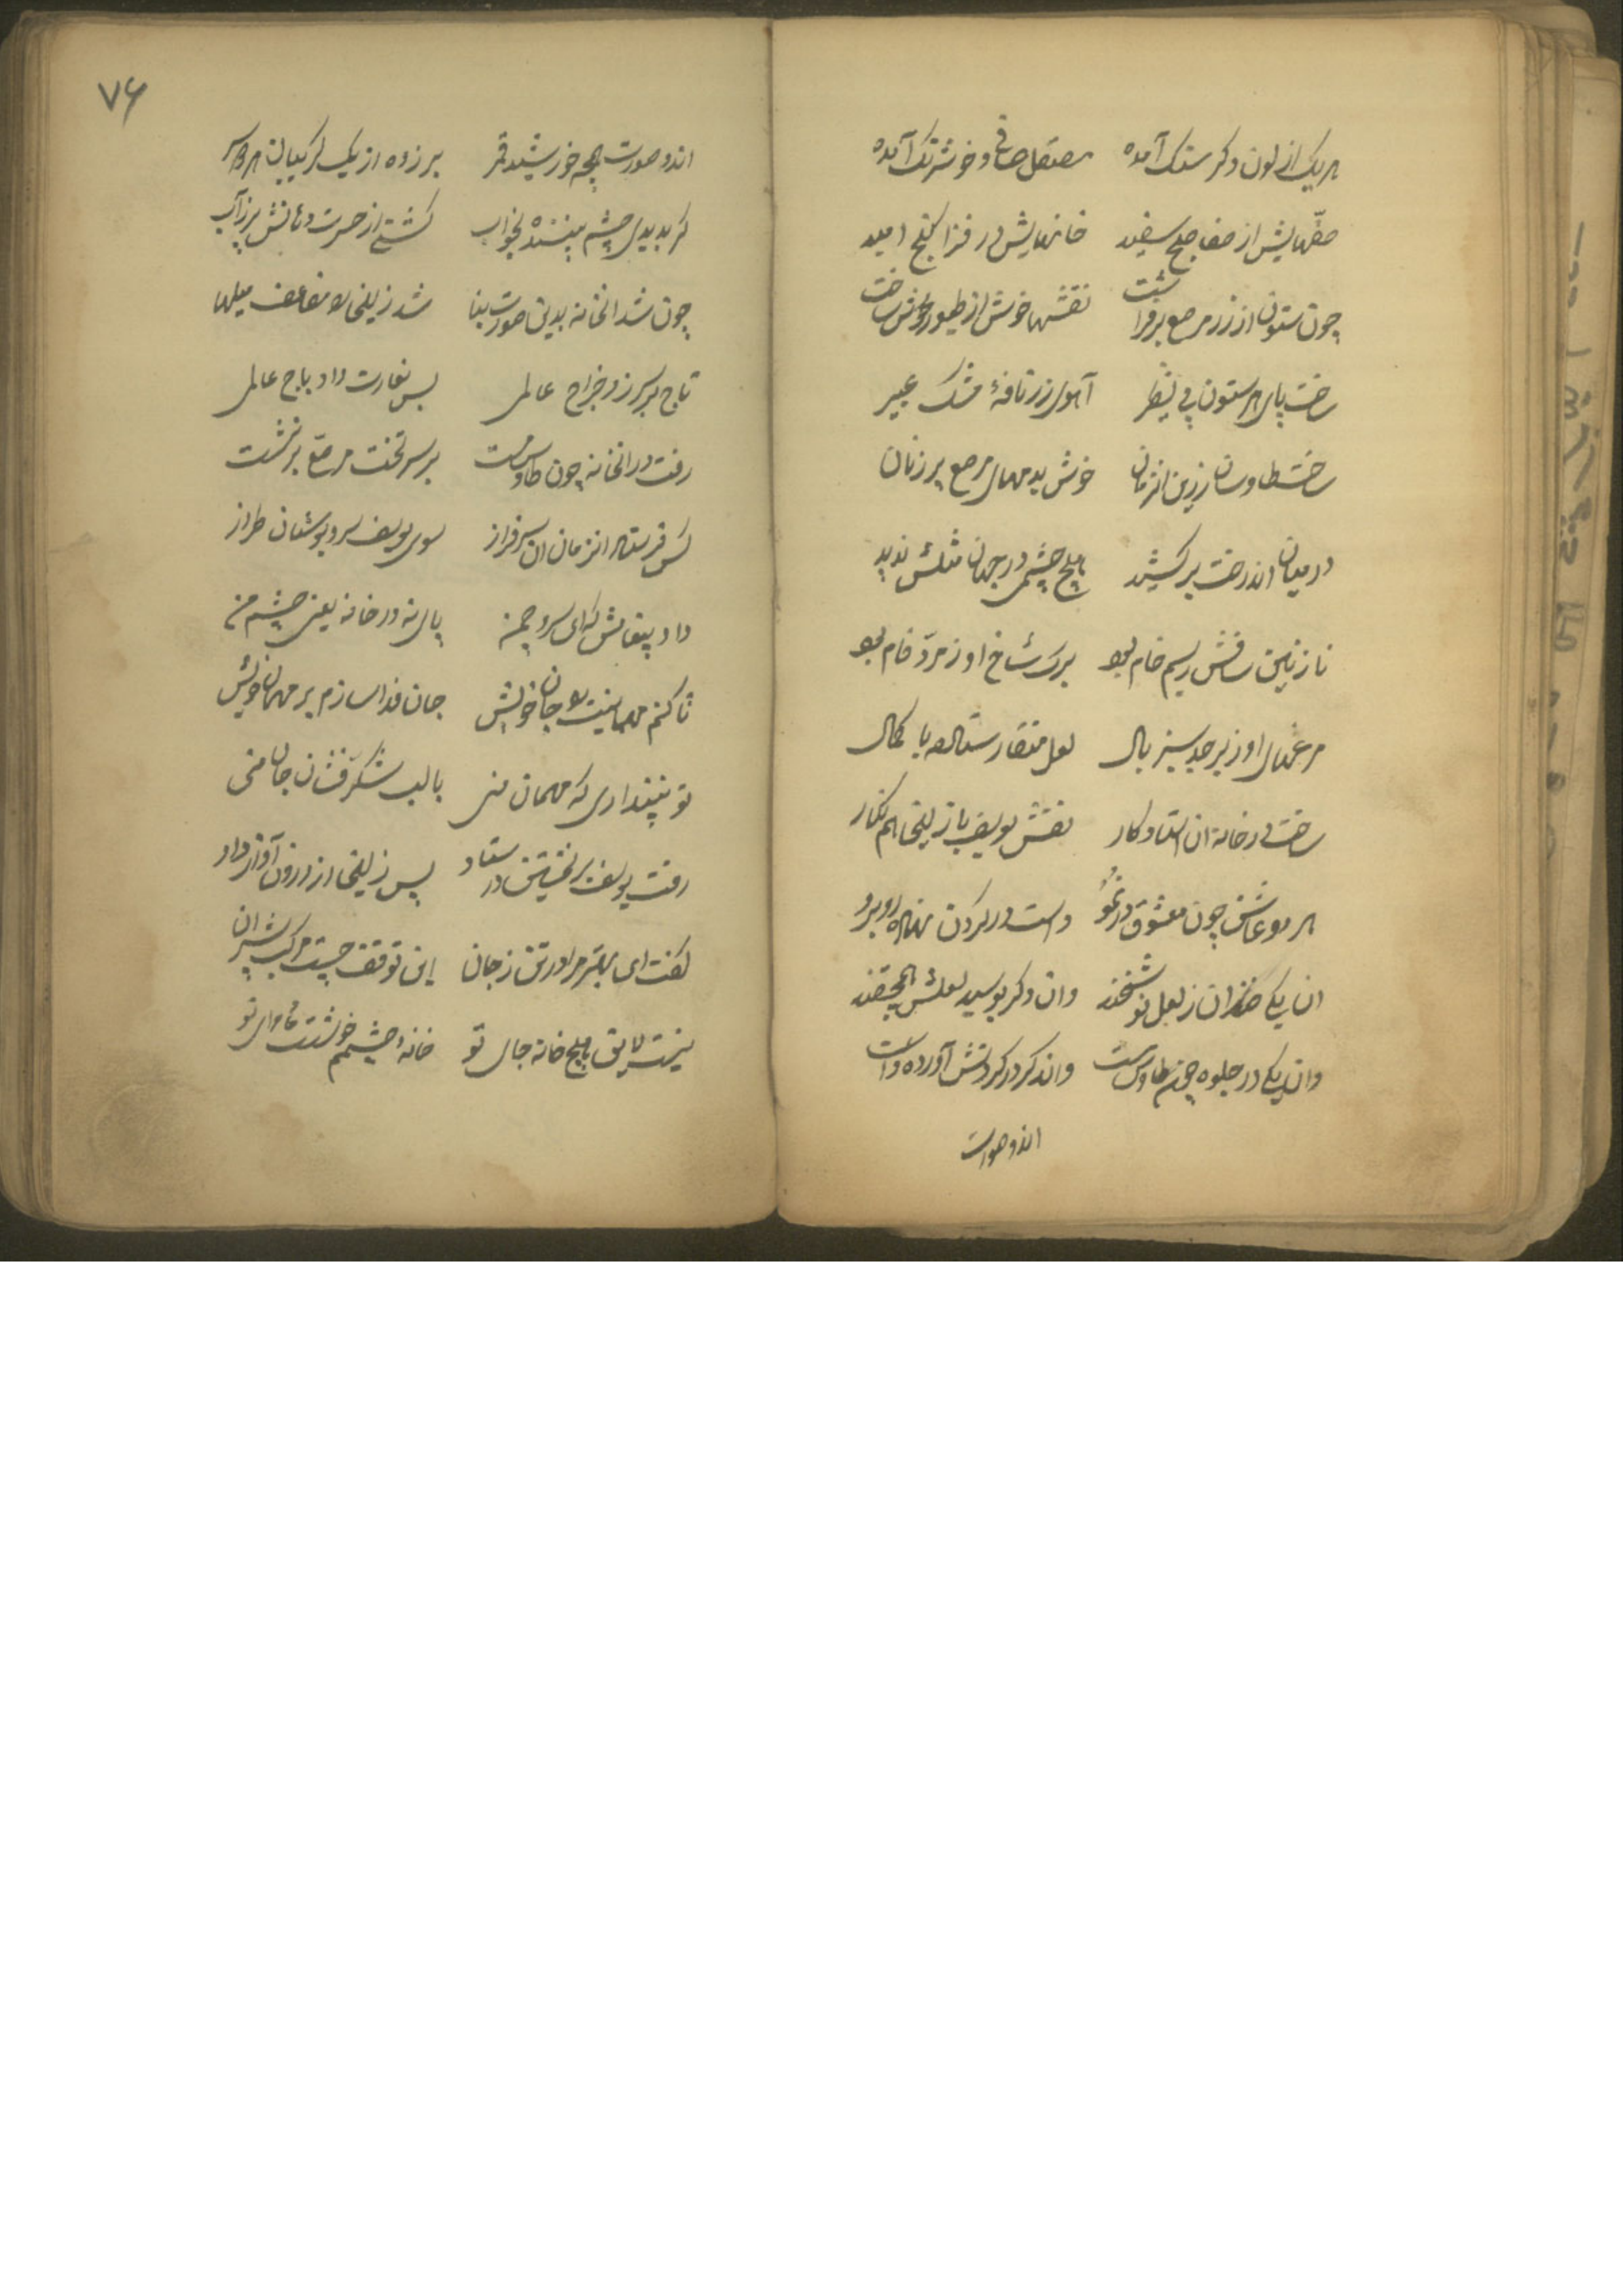 هر یک از لون دگر سنگ آمده مصقل صافی و خوشرنگ آمده
صفّهایش از صفا صبح سفید خانهایش در فزا گنج امید
چون ستون از زر مرصع برفراشت نقشها خوش از طیور و وحش ساخت
ساخت پای هر ستون بی نظیر آهوی زر نافهٔ مشک عبیر
ساخت طاوسان زرین انزمان خوش بدمهای مرصع پر زنان
در میان اندرخت برکشید هیچ چشمی در جهان مثلش ندید
نازنین ساقش ز سیم خام بود برک شاخ او زمرّد فام بود
مرغهای او زبرجد سبز بال لعل منقارستاله با کمال
ساخت در خانه ان استاد کار نقش یوسف با زلیخا هم نکار
هر دو عاشق چون معشوق در نمو دست در کردن نهاده روبرو
ان یکی خندان ز لعل نوشخند وان دکر بوسید لعلش همچو قند
وان یکی در جلوه چون طاوس مست واندکر در کردنش آورده دست
اندو صورت
۷۶
اندو صورت همچو خورشید قمر برزده از یک کریبان هر دو سر
کر بدیدی چشم بیننده بخواب کشتی از حسرت دهانش پر ز آب
چون شد انخانه بدین صورت بنا شد زلیخا را مضاعف میلها
تاج بر سر زد خراج عالمی پس بغارت داد باج عالمی
رفت در انخانه چون طاوس مست بر سر تخت مرصّع برنشست
کس فرستاد انزمان ان سرفراز سوی یوسف سرو بوستان طراز
داد پیغامش که ای سرو چمن پای نه در خانه یعنی چشم من
تا کنم مهمانیت را جان خویش جان فدا سازم بر مهمان خویش
تو نپنداری که مهمان منی با لب شکرفشان جان منی
رفت یوسف بر نخستین در ستاد پس زلیخا از درون آواز داد
کفت ای بهتر مرا در تن ز جان این توقف چیست مرکب پیشران
نیست لایق هیچ خانه جای تو خانهٔ چشمم خوشست ماوای تو